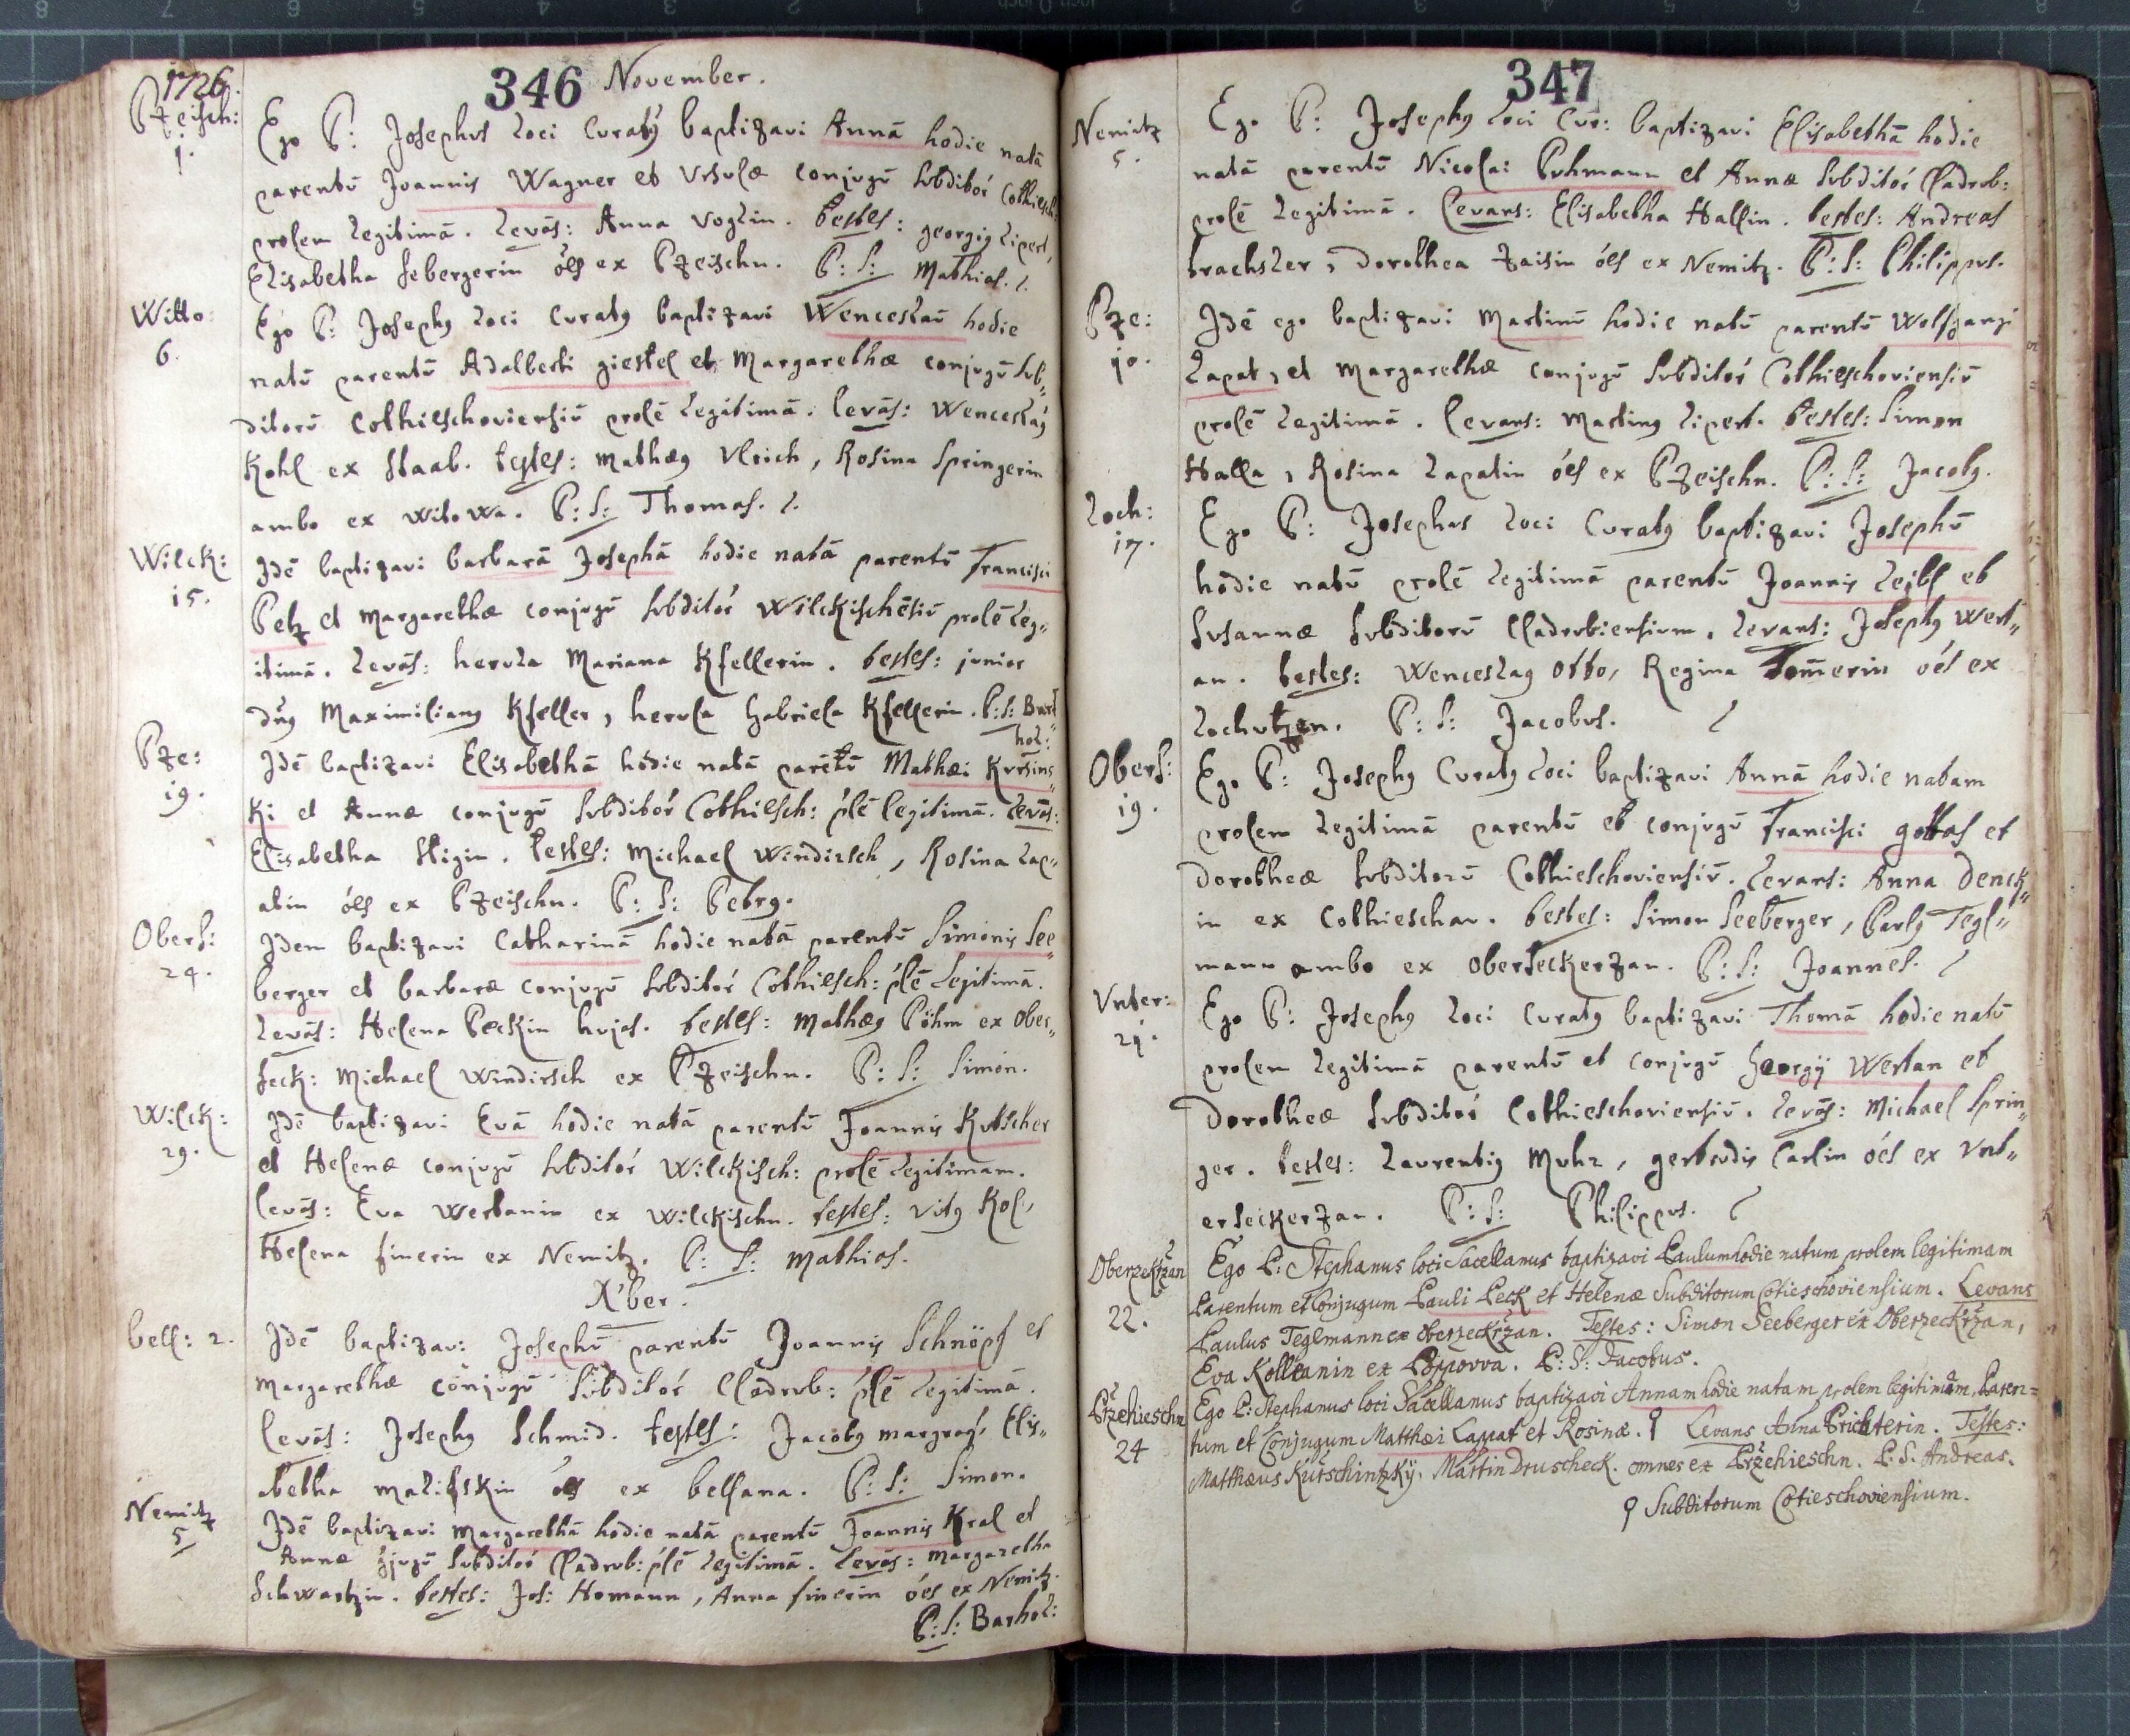 1726.
346 November.
Pzeisch:
1.
Ego P: Josephus loci Curatus baptizavi Annā hodie natā
parentū Joannis Wagner et Ursulæ conjugū subditor Cothiesch:
prolem legitimā. Levās: Anna Voglin. testes: georgius Lipert,
Elisabetha Sebergerin oēs ex Pzeischn. P: S: Mathias.
Witto:
6.
Ego P: Josephus loci Curatus baptizavi Wenceslaū hodie
natū parentū Adalberti giestel et Margarethæ conjugū sub„
ditorū Cothieschoviensiū prolē legitimā. levās: Wenceslaus
Kohl ex Staab. testes: Mathæus Ulrich, Rosina Springerin
ambo ex Witowa. P: S: Thomas.
Wilck:
15.
Idē baptizavi barbarā Josephā hodie natā parentū Francisci
Petz et Margarethæ conjugū subditor Wilckischēsiū prolē leg„
itimā. Levās: herula Mariana Kfellerin. testes: junior
dnus Maximilianus Kfeller, herula Gabriela Kfellerin. P: S: Bart
hol:
Pze:
19.
Idē baptizavi Elisabethā hodie natā parētū Mathæi Kuršins„
ki et Annæ conjugū subditor Cothiesch: plē legitimā. Levās:
Elisabetha Stigin. testes: Michael Windirsch, Rosina Lap„
atin oēs ex Pzeischn. P: S: Petrus.
Obers:
24.
Idem baptizavi Catharinā hodie natā parentū Simonis See„
berger et barbaræ conjugū subditor Cothiesch: plē legitimā.
Levās: Helena Peckin hujas. testes: Mathæus Pöhm ex Ober„
seck: Michael Windirsch ex Pzeischn. P: S: Simon.
Wilck:
29.
Idē baptizavi Evā hodie natā parentū Joannis Kutscher
et Helenæ conjugū subditor Wilckisch: prolē legitimam.
levās: Eva Wertanin ex Wilckischn. testes: Vitus Kol,
Helena finerin ex Nemitz. P: S: Mathias.
X'ber.
bell: 2.
Idē baptizavi Josephū parentū Joannis Schnöpf et
Margarethæ conjugū subditor Cladrub: plē legitimā.
levās: Josephus Schmid. testes: Jacobus margraf, Elis„
abetha malifskin oēs ex belsana. P: S: Simon.
Nemitz
5
Idē baptizavi Margarethā hodie natā parentū Joannis Kral et
Annæ ɔjugū subditor Cladrub: plē legitimā. Levās: Margaretha
Schwartzin. testes: Jos: Homann, Anna finerin oēs ex Nemitz.
P: S: Barhol:
347
Nemitz
5.
Ego P: Josephus loci Cur: baptizavi Elisabethā hodie
natā parentū Nicolai Puhmann et Annæ subditor Cladrub:
prolē legitimā. Levans: Elisabetha Hallin. testes: Andreas
trachsler, Dorothea Zaisin oēs ex Nemitz. P: S: Philippus.
Pze:
10.
Idē ego baptizavi Martinū hodie natū parentū Wolfgangi
Lapat, et Margarethæ conjugū subditor Cothieschoviensiū
prolē legitimā. Levans: Martinus Lipert. testes: Simon
Halla, Rosina Lapatin oēs ex Pzeischn. P: S: Jacobus.
Loch:
17.
Ego P: Josephus loci Curatus baptizavi Josephū
hodie natū prolē legitimā parentū Joannis Leibl et
Susannæ subditorū Cladrubiensium. Levans: Josephus Wert„
an. testes: Wenceslaus Otto, Regina Tom̄erin oēs ex
Lochutzen. P: S: Jacobus.
Obers:
19.
Ego P: Josephus Curatus loci baptizavi Annā hodie natam
prolem legitimā parentū et conjugū Francisci gottas et
Dorotheæ subditorū Cothieschoviensiū. Levans: Anna Denck„
in ex Cothieschau. testes: Simon Seeberger, Paulus Tegl„
mann ambo ex Oberseckerzan. P: S: Joannes.
Unter:
21.
Ego P: Josephus loci Curatus baptizavi Thomā hodie natū
prolem legitimā parentū et conjugū Georgij Wertan et
Dorotheæ subditor Cothieschoviensiū. Levās: Michael Sprin„
ger. testes: Laurentius Muhr, gertrudis Carlin oēs ex Unt„
erseckerzan. P: S: Philippus.
Oberzekržan
22.
Ego P: Stephanus loci Sacellanus baptizavi Paulum hodie natum prolem legitimam
Parentum et Conjugum Pauli Peck et Helenæ Subditorum Cotieschoviensium. Levans
Paulus Teglmann ex Oberzeckržan. Testes: Simon Seeberger ex Oberzeckržan,
Eva Kolleanin ex Poppovva. P: S: Jacobus.
Pržehieschn
24
Ego P: Stephanus loci Sacellanus baptizavi Annam hodie natam prolem legitimam, Paren=
tum et Conjugum Matthæi Lappat et Rosinæ. ƍ Levans Anna Prichterin. Testes:
Matthæus Kurschintzkÿ, Martin Druscheck. omnes ex Pržehieschn. P. S. Andreas.
ƍ Subditorum Cotieschoviensium.